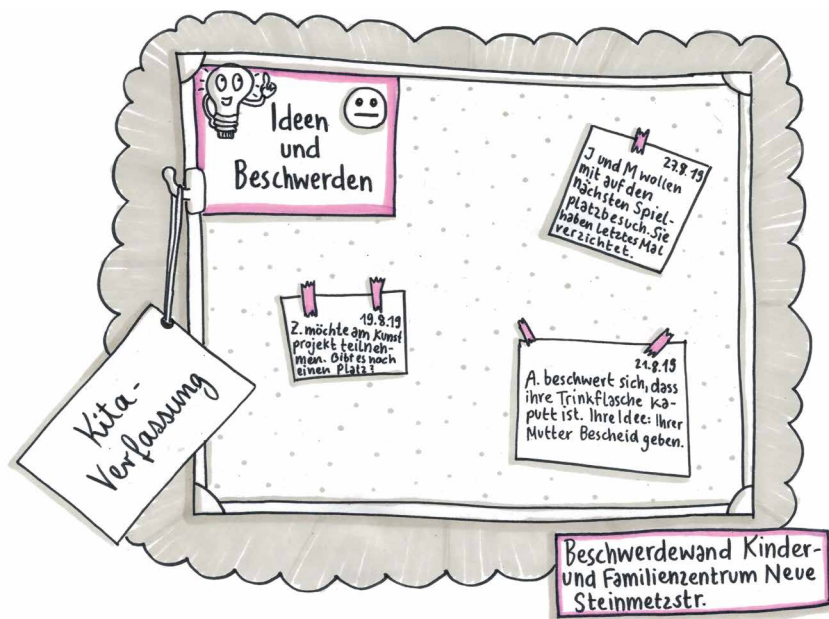 Ideen
und
Beschwerden
27.8.19
J und M wollen
mit auf den
nächsten Spiel-
platzbesuch. Sie
haben letztes Mal
verzichtet.
19.8.19
Z. möchte am Kunst
projekt teilneh-
men. Gibt es noch
einen Platz?
21.8.19
A. beschwert sich, dass
ihre Trinkflasche ka-
putt ist. Ihre Idee: Ihrer
Mutter Bescheid geben.
Kita-
Verfassung
Beschwerdewand Kinder-
und Familienzentrum Neue
Steinmetzstr.